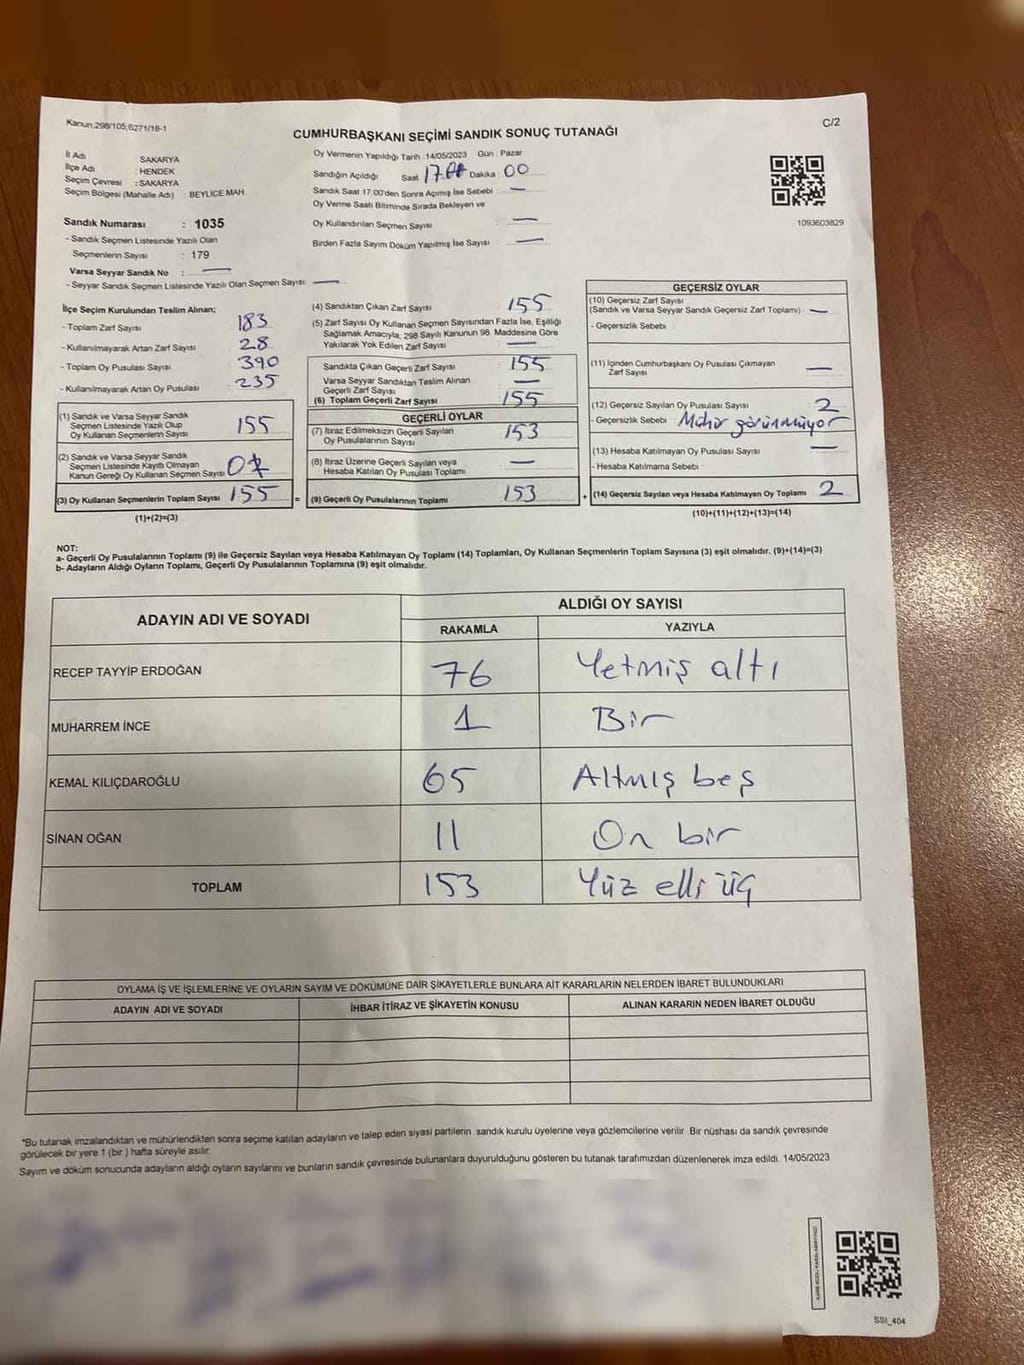 Kanun,298/105,6271/18-1
C/2
CUMHURBAŞKANI SEÇİMİ SANDIK SONUÇ TUTANAĞI
İl Adı SAKARYA
İlçe Adı : HENDEK
Seçim Çevresi : SAKARYA
Seçim Bölgesi (Mahalle Adı) : BEYLİCE MAH.
Oy Vermenin Yapıldığı Tarih :14/05/2023 Gün : Pazar
Sandığın Açıldığı Saat : 17.00 Dakika : 00
Sandık Saat 17.00'den Sonra Açımış İse Sebebi : —
Oy Verme Saati Bitiminde Sırada Bekleyen ve
Oy Kullandırılan Seçmen Sayısı : —
Birden Fazla Sayım Döküm Yapılmış İse Sayısı : —
1093603829
Sandık Numarası : 1035
- Sandık Seçmen Listesinde Yazılı Olan
Seçmenlerin Sayısı : 179
Varsa Seyyar Sandık No : —
- Seyyar Sandık Seçmen Listesinde Yazılı Olan Seçmen Sayısı : —
İlçe Seçim Kurulundan Teslim Alınan;
- Toplam Zarf Sayısı : 183
- Kullanılmayarak Artan Zarf Sayısı : 28
- Toplam Oy Pusulası Sayısı : 390
- Kullanılmayarak Artan Oy Pusulası : 235
(1) Sandık ve Varsa Seyyar Sandık
Seçmen Listesinde Yazılı Olup
Oy Kullanan Seçmenlerin Sayısı : 155
(2) Sandık ve Varsa Seyyar Sandık
Seçmen Listesinde Kayıtlı Olmayan
Kanun Gereği Oy Kullanan Seçmen Sayısı : 0
(3) Oy Kullanan Seçmenlerin Toplam Sayısı : 155
(1)+(2)=(3)
(4) Sandıktan Çıkan Zarf Sayısı : 155
(5) Zarf Sayısı Oy Kullanan Seçmen Sayısından Fazla İse, Eşitliği
Sağlamak Amacıyla, 298 Sayılı Kanunun 98. Maddesine Göre
Yakılarak Yok Edilen Zarf Sayısı : —
Sandıkta Çıkan Geçerli Zarf Sayısı : 155
Varsa Seyyar Sandıktan Teslim Alınan
Geçerli Zarf Sayısı : —
(6) Toplam Geçerli Zarf Sayısı : 155
GEÇERLİ OYLAR
(7) İtiraz Edilmeksizin Geçerli Sayılan
Oy Pusulalarının Sayısı : 153
(8) İtiraz Üzerine Geçerli Sayılan veya
Hesaba Katılan Oy Pusulası Toplamı : —
= (9) Geçerli Oy Pusulalarının Toplamı : 153
GEÇERSİZ OYLAR
(10) Geçersiz Zarf Sayısı
(Sandık ve Varsa Seyyar Sandık Geçersiz Zarf Toplamı) : —
- Geçersizlik Sebebi :
(11) İçinden Cumhurbaşkanı Oy Pusulası Çıkmayan
Zarf Sayısı : —
(12) Geçersiz Sayılan Oy Pusulası Sayısı : 2
- Geçersizlik Sebebi : Mühür görünmüyor
(13) Hesaba Katılmayan Oy Pusulası Sayısı : —
- Hesaba Katılmama Sebebi :
+ (14) Geçersiz Sayılan veya Hesaba Katılmayan Oy Toplamı : 2
(10)+(11)+(12)+(13)=(14)
NOT:
a- Geçerli Oy Pusulalarının Toplamı (9) ile Geçersiz Sayılan veya Hesaba Katılmayan Oy Toplamı (14) Toplamları, Oy Kullanan Seçmenlerin Toplam Sayısına (3) eşit olmalıdır. (9)+(14)=(3)
b- Adayların Aldığı Oyların Toplamı, Geçerli Oy Pusulalarının Toplamına (9) eşit olmalıdır.
ADAYIN ADI VE SOYADI
ALDIĞI OY SAYISI
RAKAMLA YAZIYLA
RECEP TAYYİP ERDOĞAN 76 Yetmiş altı
MUHARREM İNCE 1 Bir
KEMAL KILIÇDAROĞLU 65 Altmış beş
SİNAN OĞAN 11 On bir
TOPLAM 153 Yüz elli üç
OYLAMA İŞ VE İŞLEMLERİNE VE OYLARIN SAYIM VE DÖKÜMÜNE DAİR ŞİKAYETLERLE BUNLARA AİT KARARLARIN NELERDEN İBARET BULUNDUKLARI
ADAYIN ADI VE SOYADI İHBAR İTİRAZ VE ŞİKAYETİN KONUSU ALINAN KARARIN NEDEN İBARET OLDUĞU
*Bu tutanak imzalandıktan ve mühürlendikten sonra seçime katılan adayların ve talep eden siyasi partilerin sandık kurulu üyelerine veya gözlemcilerine verilir. Bir nüshası da sandık çevresinde
görülecek bir yere 1 (bir ) hafta süreyle asılır.
Sayım ve döküm sonucunda adayların aldığı oyların sayılarını ve bunların sandık çevresinde bulunanlara duyurulduğunu gösteren bu tutanak tarafımızdan düzenlenerek imza edildi. 14/05/2023
SSI_404